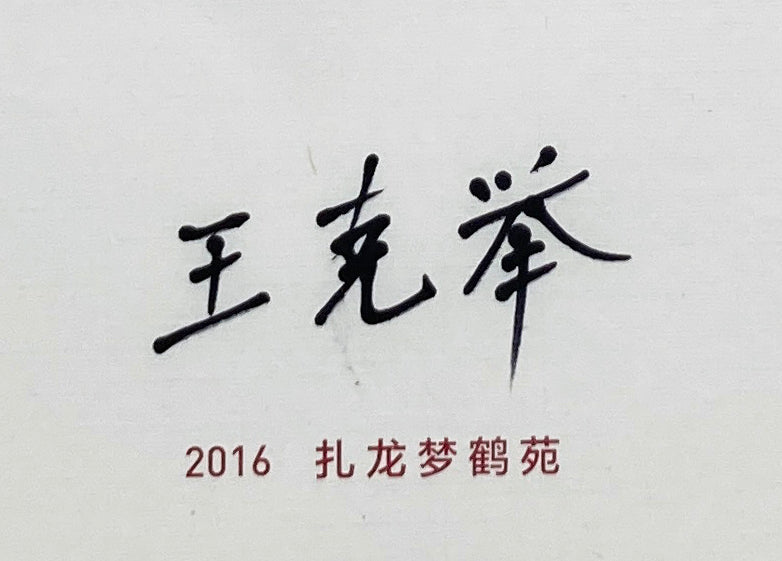 王克举
2016 扎龙梦鹤苑